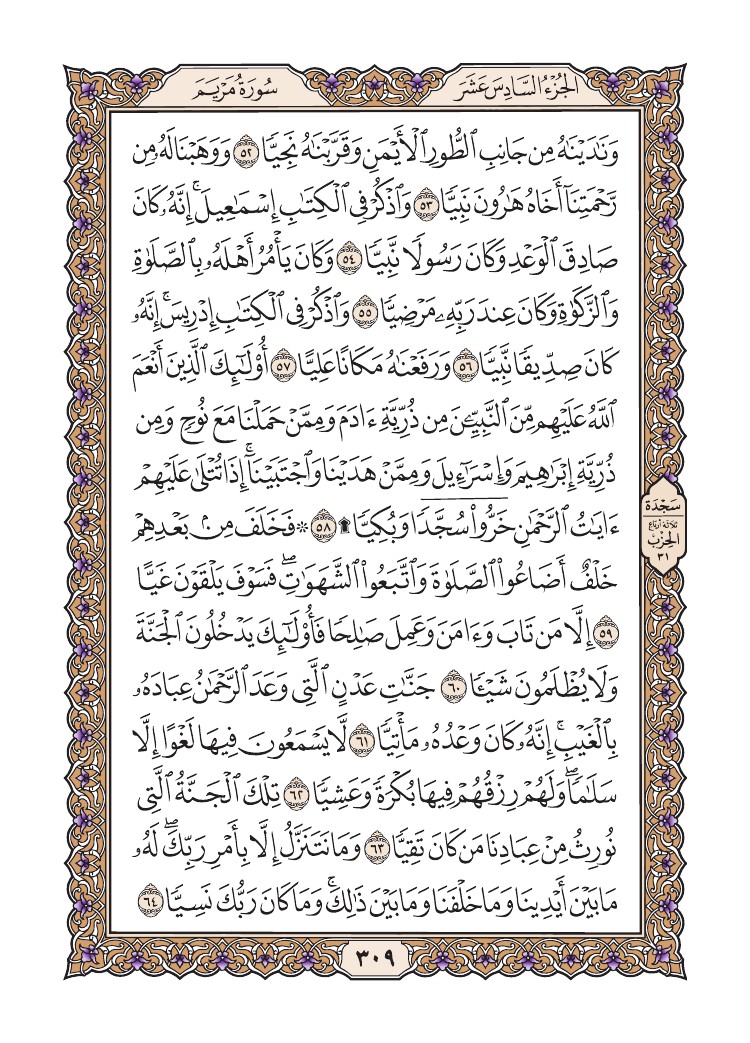 الجُزْءُ السَّادِسَ عَشَرَ
سُورَةُ مَرْيَمَ
وَنَٰدَيْنَٰهُ مِن جَانِبِ ٱلطُّورِ ٱلْأَيْمَنِ وَقَرَّبْنَٰهُ نَجِيًّا ٥٢ وَوَهَبْنَا لَهُۥ مِن
رَّحْمَتِنَآ أَخَاهُ هَٰرُونَ نَبِيًّا ٥٣ وَٱذْكُرْ فِي ٱلْكِتَٰبِ إِسْمَٰعِيلَۚ إِنَّهُۥ كَانَ
صَادِقَ ٱلْوَعْدِ وَكَانَ رَسُولًا نَّبِيًّا ٥٤ وَكَانَ يَأْمُرُ أَهْلَهُۥ بِٱلصَّلَوٰةِ
وَٱلزَّكَوٰةِ وَكَانَ عِندَ رَبِّهِۦ مَرْضِيًّا ٥٥ وَٱذْكُرْ فِي ٱلْكِتَٰبِ إِدْرِيسَۚ إِنَّهُۥ
كَانَ صِدِّيقًا نَّبِيًّا ٥٦ وَرَفَعْنَٰهُ مَكَانًا عَلِيًّا ٥٧ أُوْلَٰٓئِكَ ٱلَّذِينَ أَنْعَمَ
ٱللَّهُ عَلَيْهِم مِّنَ ٱلنَّبِيِّـۧنَ مِن ذُرِّيَّةِ ءَادَمَ وَمِمَّنْ حَمَلْنَا مَعَ نُوحٍ وَمِن
ذُرِّيَّةِ إِبْرَٰهِيمَ وَإِسْرَٰٓءِيلَ وَمِمَّنْ هَدَيْنَا وَٱجْتَبَيْنَآۚ إِذَا تُتْلَىٰ عَلَيْهِمْ
ءَايَٰتُ ٱلرَّحْمَٰنِ خَرُّواْ سُجَّدًا وَبُكِيًّا۩ ٥٨ ۞ فَخَلَفَ مِنۢ بَعْدِهِمْ
خَلْفٌ أَضَاعُواْ ٱلصَّلَوٰةَ وَٱتَّبَعُواْ ٱلشَّهَوَٰتِۖ فَسَوْفَ يَلْقَوْنَ غَيًّا
٥٩ إِلَّا مَن تَابَ وَءَامَنَ وَعَمِلَ صَٰلِحًا فَأُوْلَٰٓئِكَ يَدْخُلُونَ ٱلْجَنَّةَ
وَلَا يُظْلَمُونَ شَيْـًٔا ٦٠ جَنَّٰتِ عَدْنٍ ٱلَّتِي وَعَدَ ٱلرَّحْمَٰنُ عِبَادَهُۥ
بِٱلْغَيْبِۚ إِنَّهُۥ كَانَ وَعْدُهُۥ مَأْتِيًّا ٦١ لَّا يَسْمَعُونَ فِيهَا لَغْوًا إِلَّا
سَلَٰمًاۖ وَلَهُمْ رِزْقُهُمْ فِيهَا بُكْرَةً وَعَشِيًّا ٦٢ تِلْكَ ٱلْجَنَّةُ ٱلَّتِي
نُورِثُ مِنْ عِبَادِنَا مَن كَانَ تَقِيًّا ٦٣ وَمَا نَتَنَزَّلُ إِلَّا بِأَمْرِ رَبِّكَۖ لَهُۥ
مَا بَيْنَ أَيْدِينَا وَمَا خَلْفَنَا وَمَا بَيْنَ ذَٰلِكَۚ وَمَا كَانَ رَبُّكَ نَسِيًّا ٦٤
سَجْدَة
ثلاثة أرباع
الحِزْب
٣١
٣٠٩